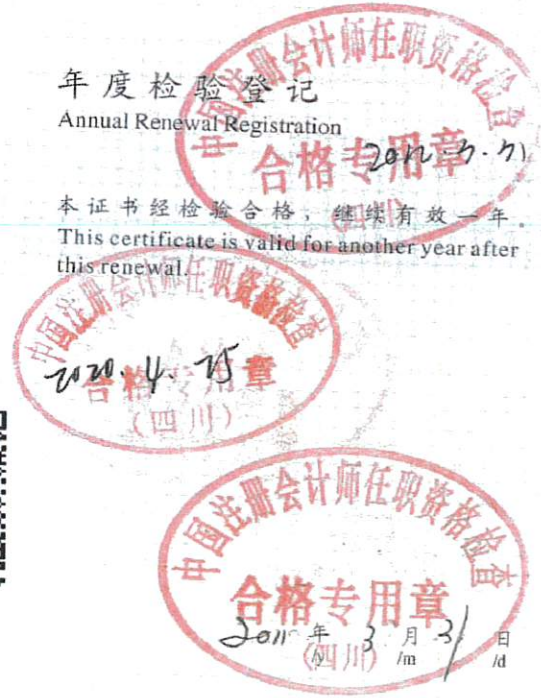 年度检验登记
Annual Renewal Registration
中国注册会计师任职资格检查
合格专用章
(四川)
本证书经检验合格，继续有效一年。
This certificate is valid for another year after
this renewal.
中国注册会计师任职资格检查
2020.4.25
合格专用章
(四川)
中国注册会计师任职资格检查
合格专用章
(四川)
2011 年 3 月 31 日
/y /m /d